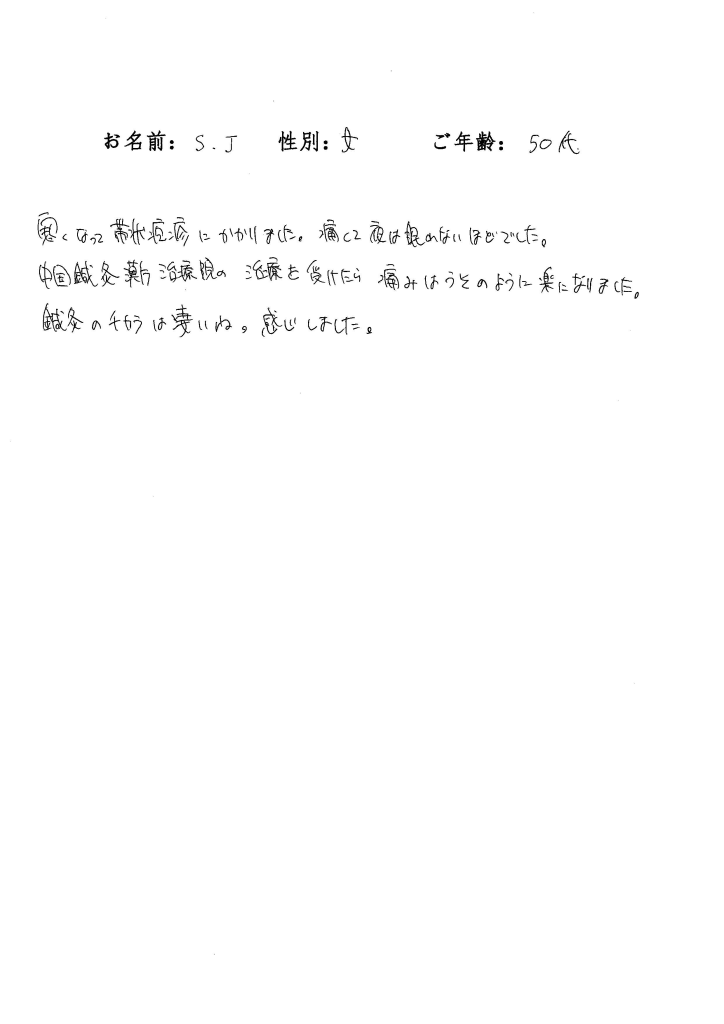 お名前： S.J 性別：女 ご年齢： 50代
寒くなって帯状疱疹にかかりました。痛くて夜は眠れないほどでした。
中国鍼灸薬片治療院の治療を受けたら痛みはうそのように楽になりました。
鍼灸のチカラは凄いね。感じしました。